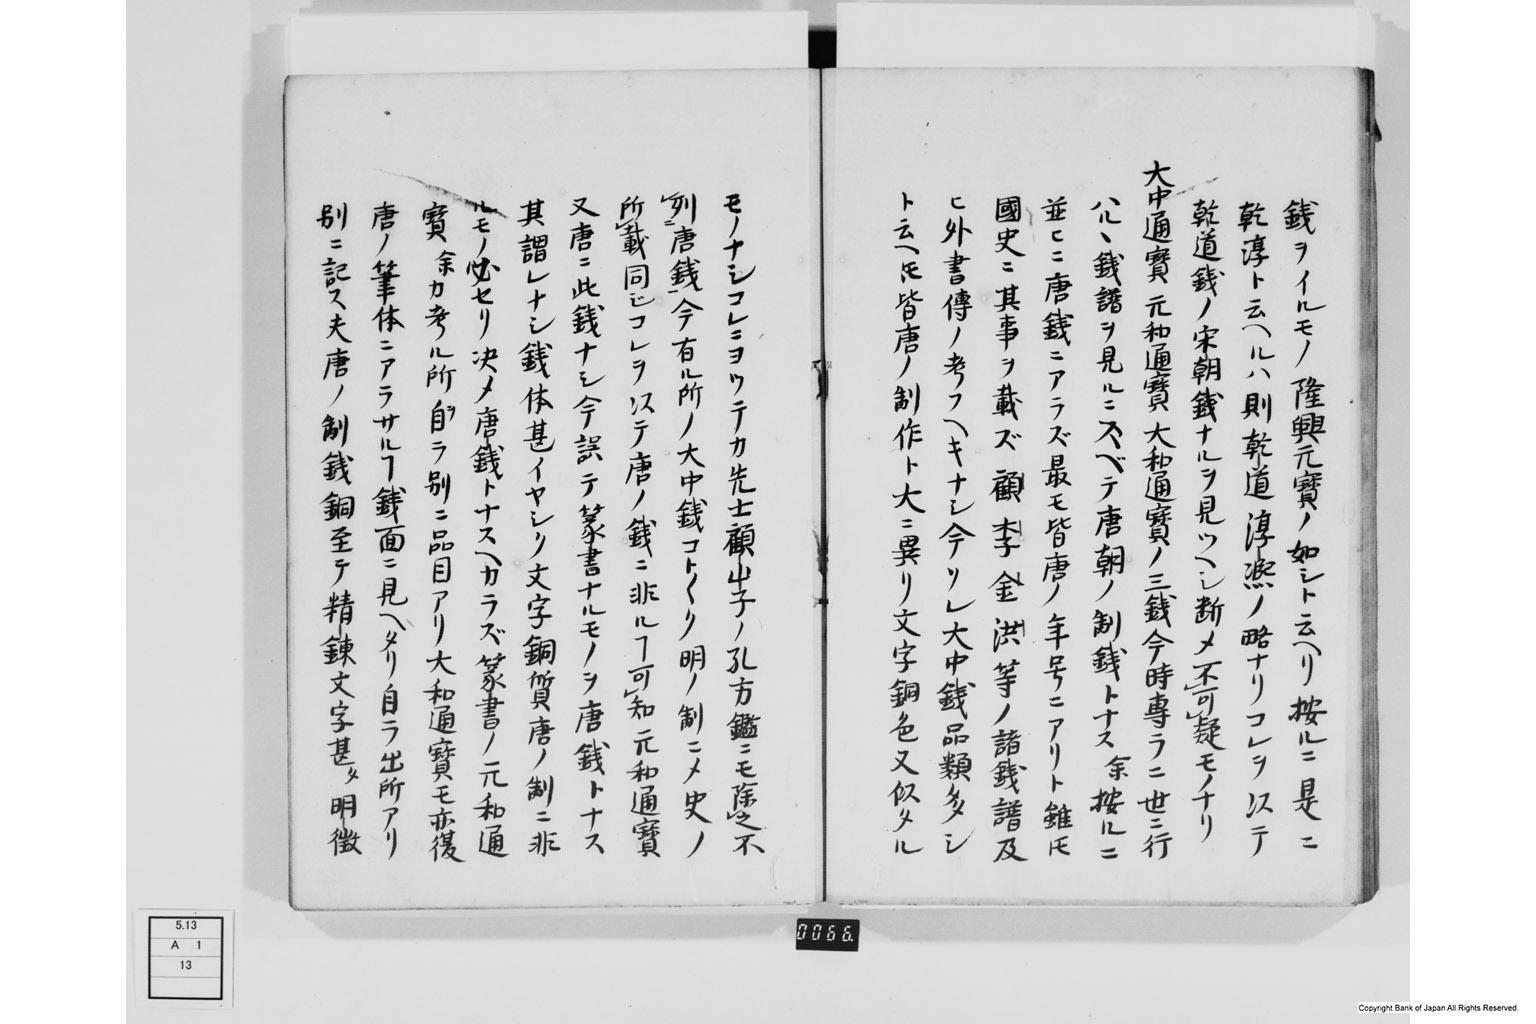 銭ヲイルモノ隆興元寳ノ如シト云ヘリ按ルニ是ニ
乾淳ト云ヘルハ則乾道淳熈ノ略ナリコレヲ以テ
乾道銭ノ宋朝銭ナルヲ見ツヘシ断メ不可疑モノナリ
大中通寳元和通寳大和通寳ノ三銭今時専ラニ世ニ行
ハルヽ銭譜ヲ見ルニスベテ唐朝ノ制銭トナス余按ルニ
並ヒニ唐銭ニアラズ最モ皆唐ノ年号ニアリト雖ㇳモ
國史ニ其事ヲ載ズ顧李金洪等ノ諸銭譜及
ヒ外書傳ノ考フヘキナシ今ソレ大中銭品類多シ
ト云ヘㇳモ皆唐ノ制作ト大ニ異リ文字銅色又似タル
モノナシコレニヨツテカ先士顧山子ノ孔方鑑ニモ除之不
列唐銭ニ今有ル所ノ大中銭コト〱ク明ノ制ニメ史ノ
所載同ジコレヲ以テ唐ノ銭ニ非ルヿ可知元和通寳
又唐ニ此銭ナシ今誤テ篆書ナルモノヲ唐銭トナス
其謂レナシ銭体甚イヤシク文字銅質唐ノ制ニ非
ルモノ必セリ决メ唐銭トナスヘカラズ篆書ノ元和通
寳余カ考ル所自ヲラ別ニ品目アリ大和通寳モ亦復
唐ノ筆体ニアラサルヿ銭面ニ見ヘタリ自ラ出所アリ
別ニ記ス夫唐ノ制銭銅至テ精錬文字甚タ明徴
5.13
A 1
13
0066.
Copyright Bank of Japan All Rights Reserved.